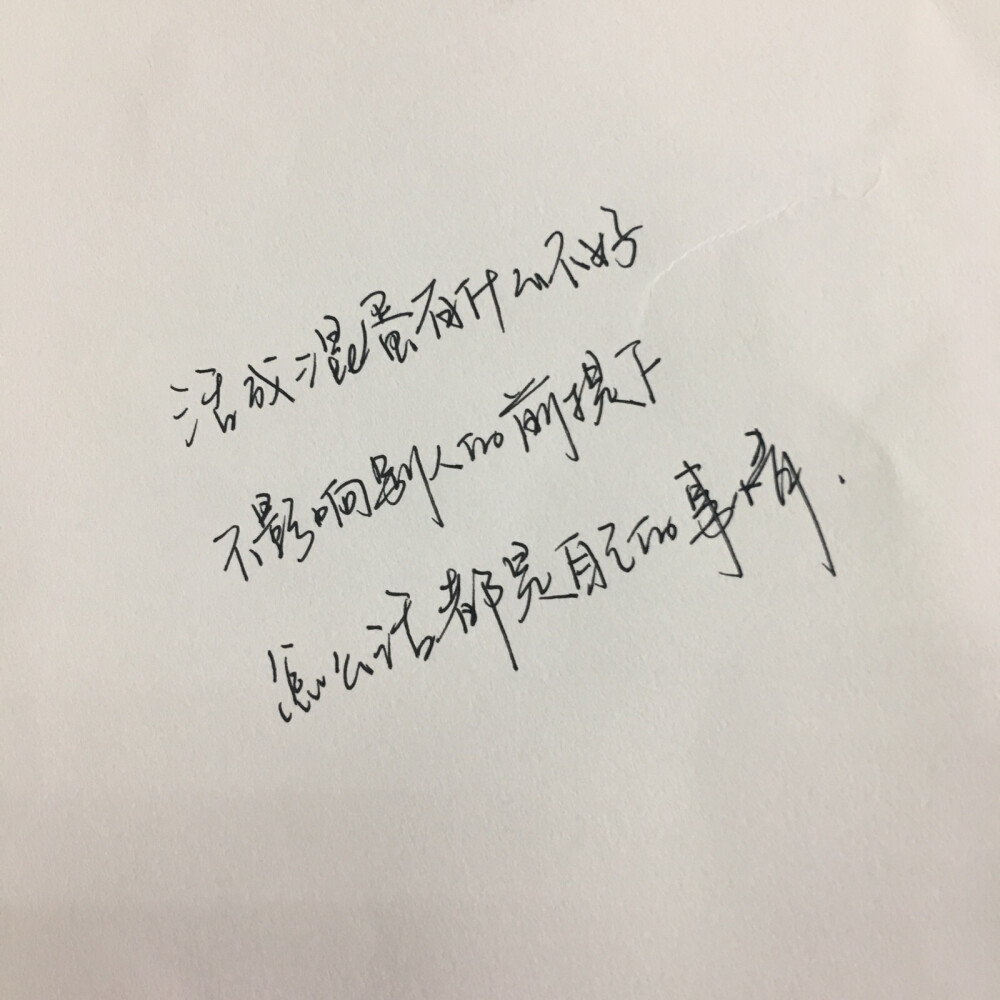 活成混蛋有什么不好
不影响别人的前提下
怎么活都是自己的事情.